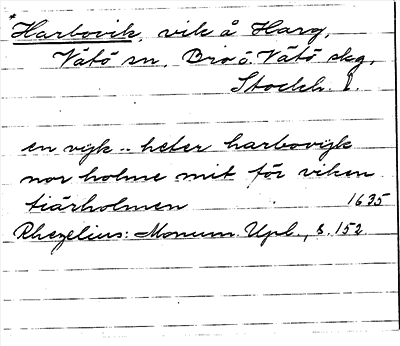 *Harbovik, vik å Harg,
Vätö sn, Bro o. Vätö skg,
Stockh. l.
en vijk .. heter harbovijk
nor holme mit för viken
tiärholmen 1635
Rhezelius: Monum. Upl., s. 152.